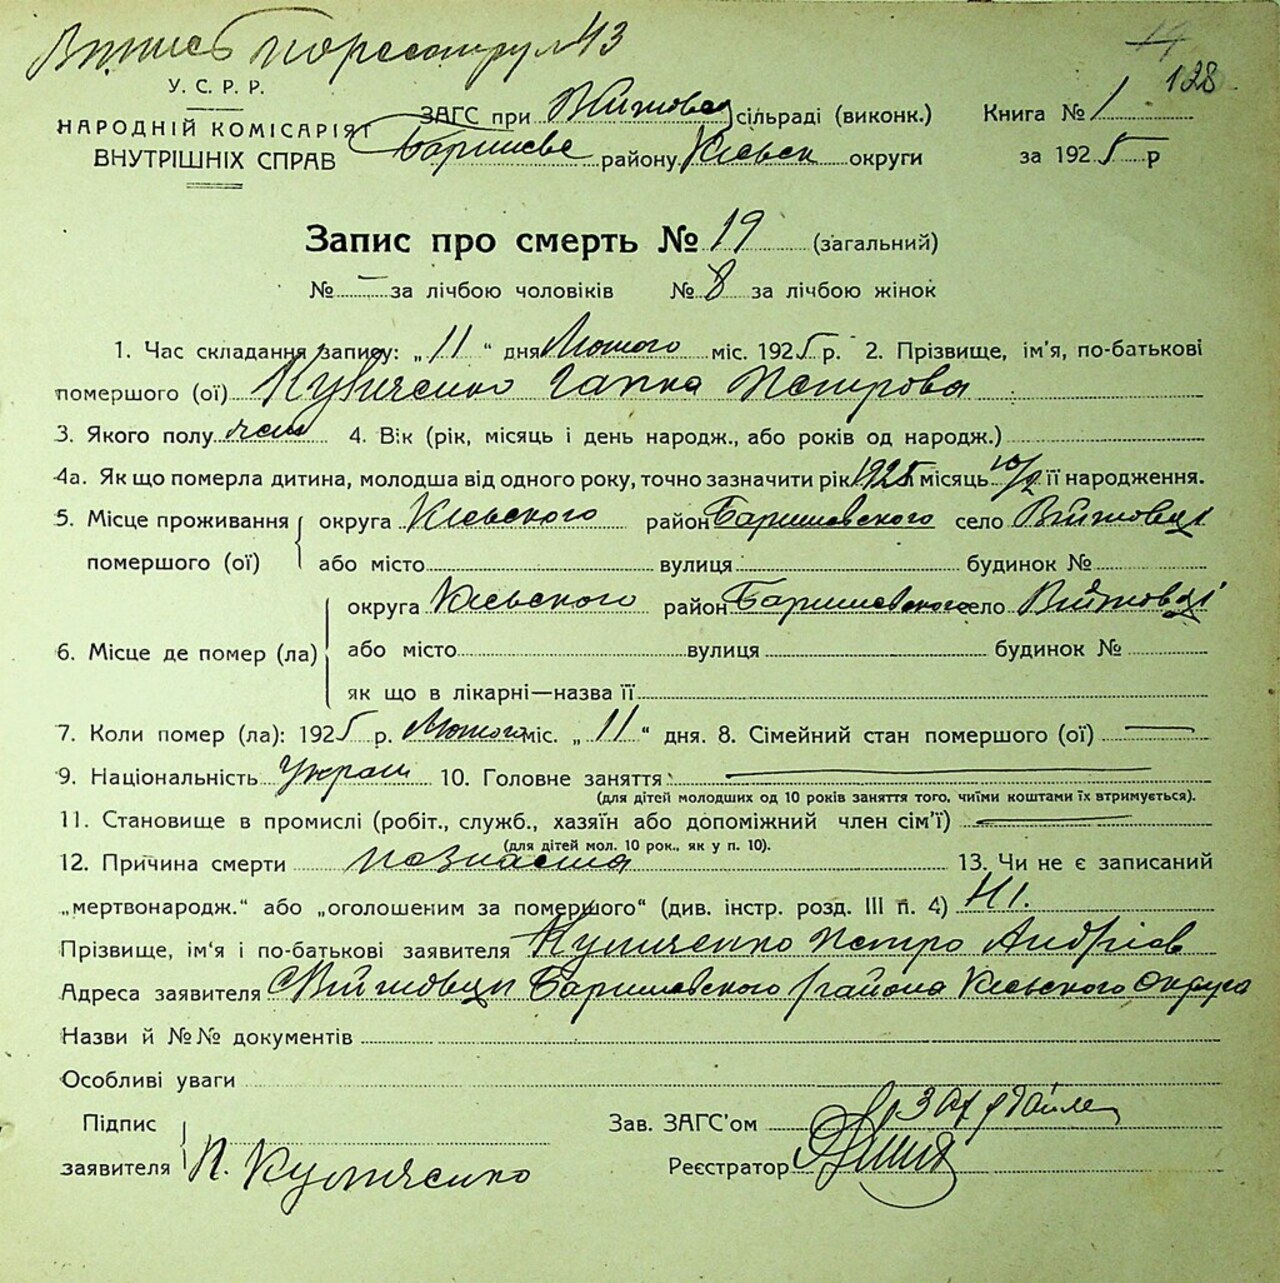 Впись по реестру №43
128
У. С. Р. Р.
НАРОДНІЙ КОМІСАРІЯТ
ВНУТРІШНІХ СПРАВ
ЗАГС при Війтовец сільраді (виконк.)
Баришевс району Київск округи
Книга № 1
за 1925 р
Запис про смерть № 19 (загальний)
№ — за лічбою чоловіків № 8 за лічбою жінок
1. Час складання запису: „11“ дня Лютого міс. 1925 р. 2. Прізвище, ім'я, по-батькові
помершого (ої) Куличенко Гапка Петрова
3. Якого полу жен 4. Вік (рік, місяць і день народж., або років од народж.)
4а. Як що померла дитина, молодша від одного року, точно зазначити рік 1925 місяць 10/2 її народження.
5. Місце проживання помершого (ої)
округа Київського район Баришевского село Війтовці
або місто вулиця будинок №
6. Місце де помер (ла)
округа Київського район Баришевского село Війтовці
або місто вулиця будинок №
як що в лікарні—назва її
7. Коли помер (ла): 1925 р. Лютого міс. „11“ дня. 8. Сімейний стан помершого (ої) —
9. Національність Украін 10. Головне заняття: —
(для дітей молодших од 10 років заняття того, чиїми коштами їх втримується).
11. Становище в промислі (робіт., служб., хазяїн або допоміжний член сім'ї) —
(для дітей мол. 10 рок., як у п. 10).
12. Причина смерти 13. Чи не є записаний
„мертвонародж.“ або „оголошеним за помершого“ (див. інстр. розд. III п. 4) Ні.
Прізвище, ім'я і по-батькові заявителя Куличенко Петро Андріів
Адреса заявителя Війтовци Баришевского района Київського Округа
Назви й №№ документів
Особливі уваги
Підпис
заявителя П. Куличенко
Зав. ЗАГС'ом
Реєстратор